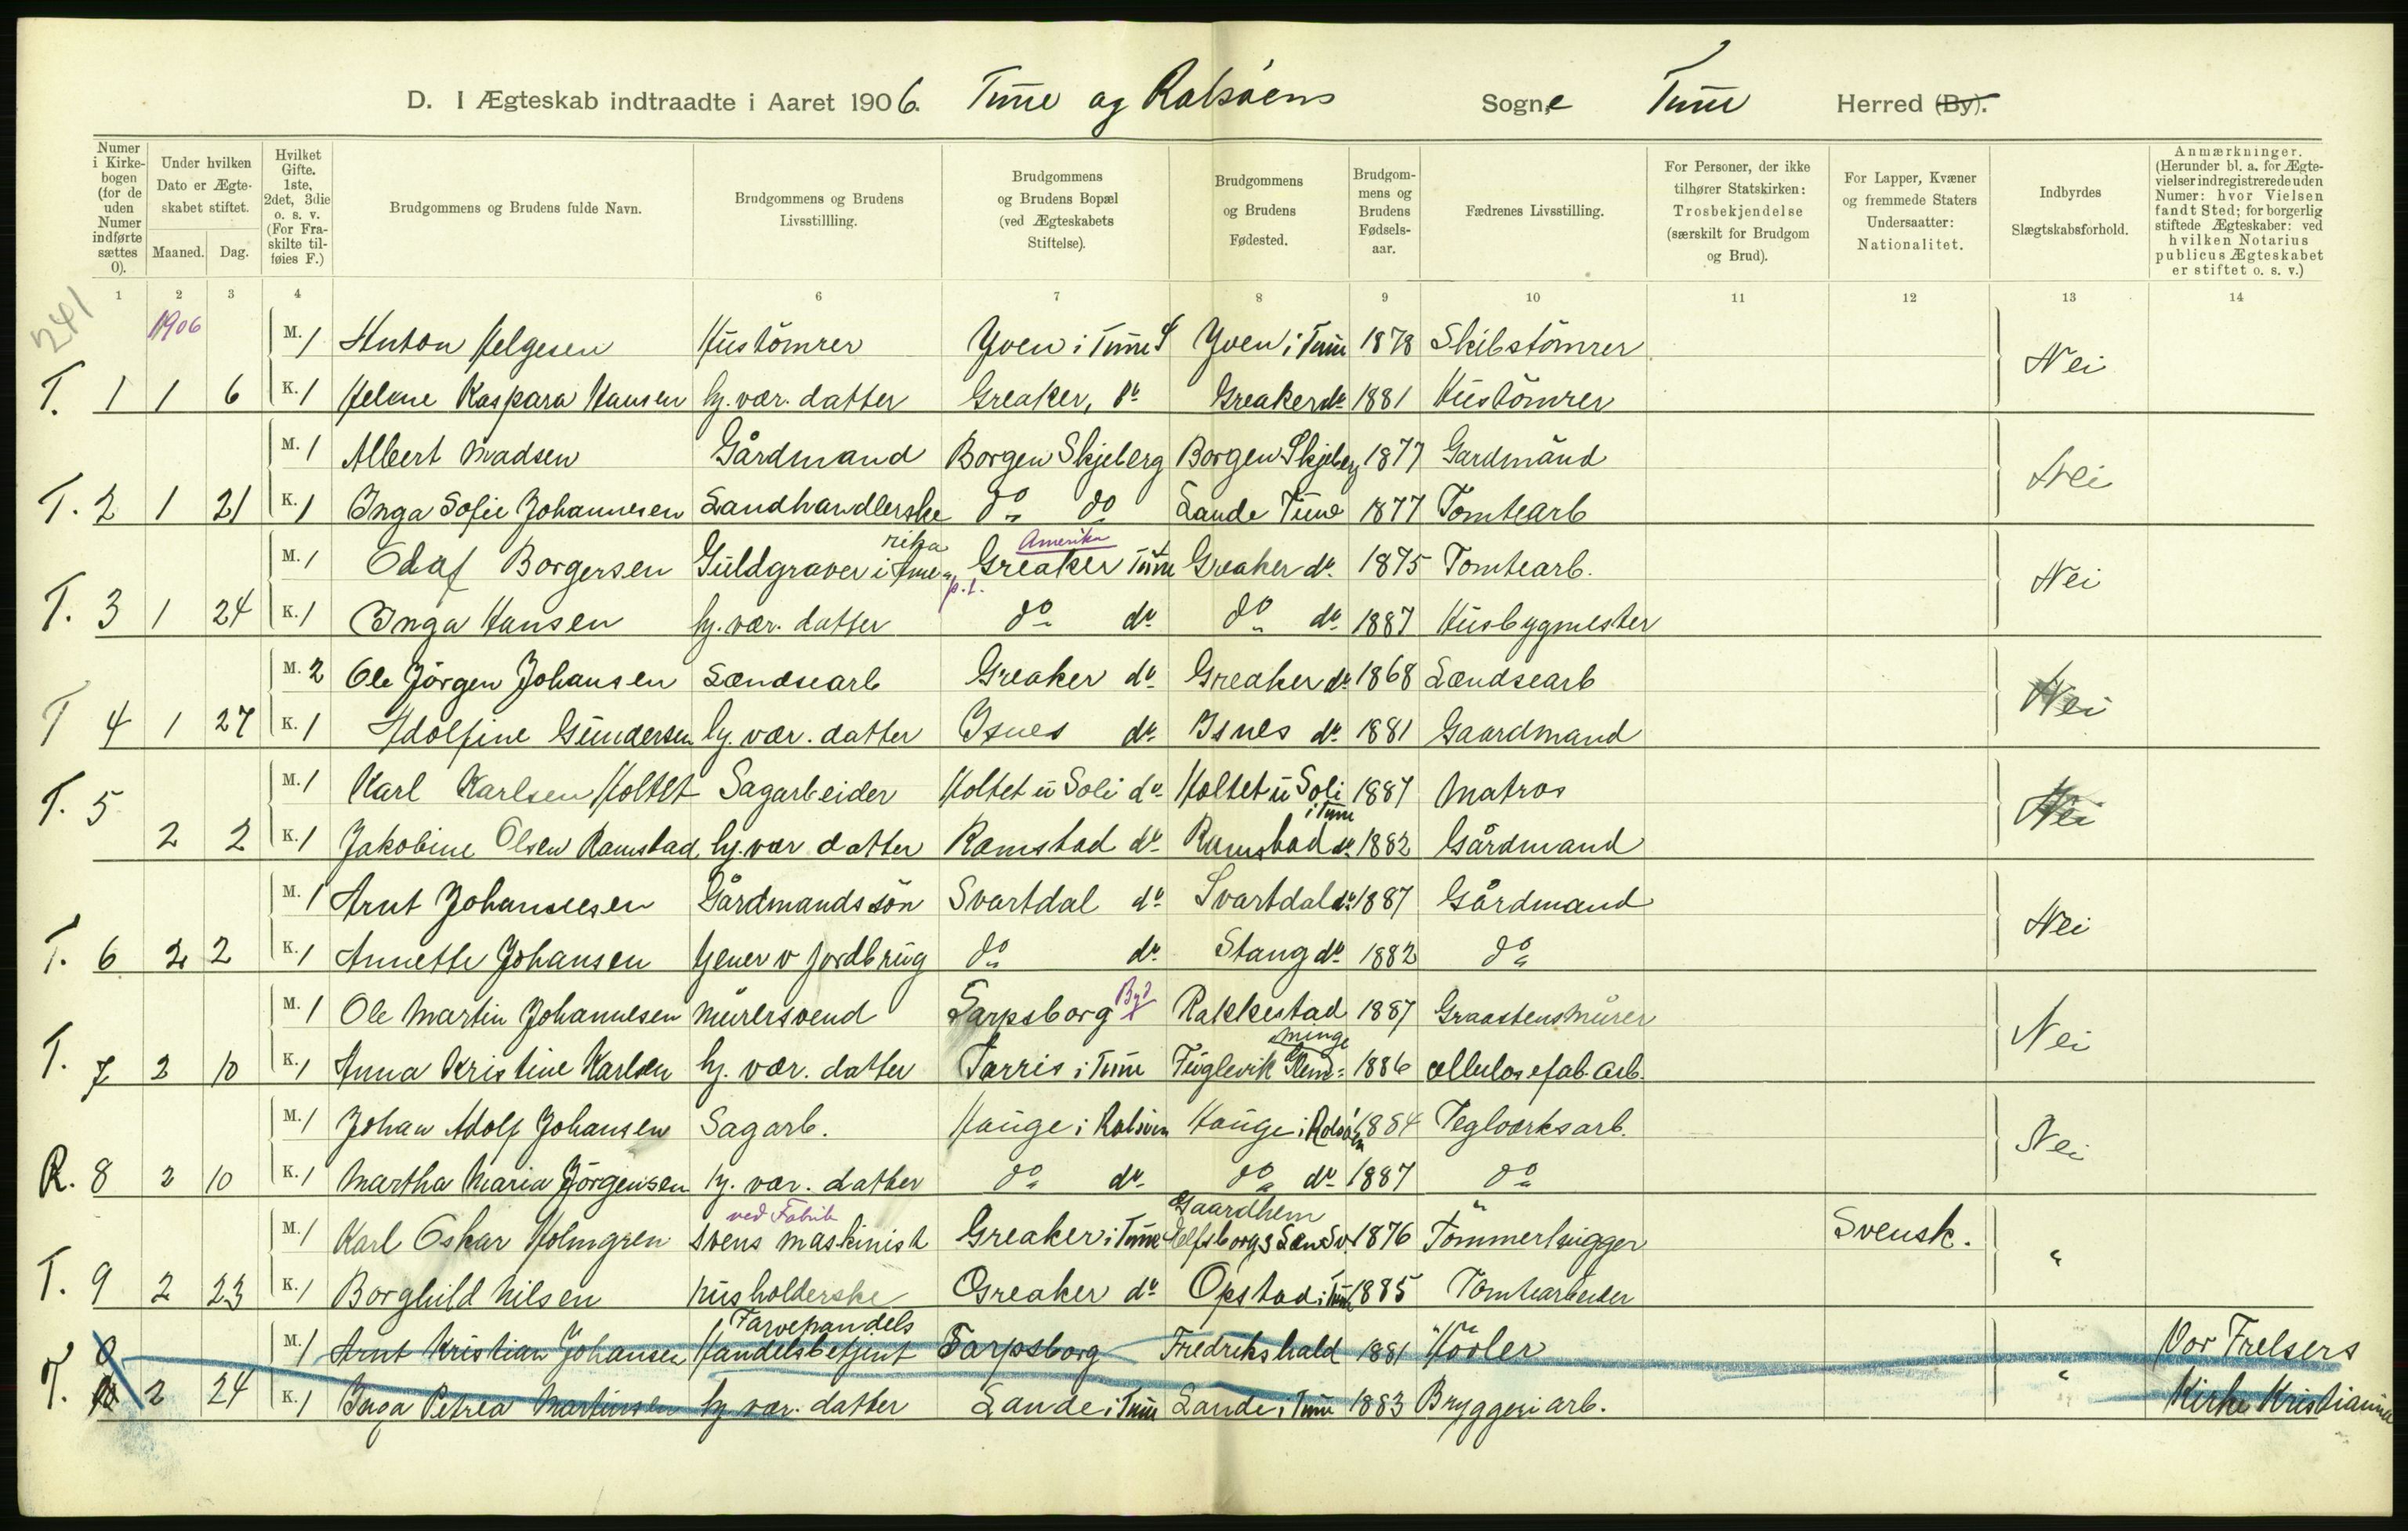 D. I Ægteskab indtraadte i Aaret 1906. Tune og Rolsøens Sogne Tune Herred (By).
Numer i Kirkebogen (for de uden Numer indførte sættes 0).
Under hvilken Dato er Ægteskabet stiftet.
Maaned. Dag.
Hvilket Gifte. 1ste, 2det, 3die o. s. v. (For Fraskilte tilføies F.)
Brudgommens og Brudens fulde Navn.
Brudgommens og Brudens Livsstillling.
Brudgommens og Brudens Bopæl (ved Ægteskabets Stiftelse).
Brudgommens og Brudens Fødested.
Brudgommens og Brudens Fødselsaar.
Fædrenes Livsstilling.
For Personer, der ikke tilhører Statskirken: Trosbekjendelse (særskilt for Brudgom og Brud).
For Lapper, Kvæner og fremmede Staters Undersaatter: Nationalitet.
Indbyrdes Slægtskabsforhold.
Anmærkninger. (Herunder bl. a. for Ægtevielser indregistrerede uden Numer: hvor Vielsen fandt Sted; for borgerlig stiftede Ægteskaber: ved hvilken Notarius publicus Ægteskabet er stiftet o. s. v.)
1 2 3 4 6 7 8 9 10 11 12 13 14
241
1906
M. 1 Anton Helgesen Hustömrer Yven i Tune Yven i Tune 1878 Skibstömrer
Nei
T. 1 1 6 K. 1 Helene Kaspara Hansen hj. vær. datter Greaker, do Greaker do 1881 Hustömrer
M. 1 Albert Madsen Gårdmand Borgen Skjeberg Borgen Skjeberg 1877 Gardmand
Nei
T. 2 1 21 K. 1 Inga Sofie Johannesen Landhandlerske do do Lande Tune 1877 Tomtearb
rika Amerika
M. 1 Olaf Borgersen Guldgraver i Ame- Greaker Tune Greaker do 1875 Tomtearb.
p.t.
Nei
T. 3 1 24 K. 1 Inga Hansen hj. vær. datter do do do do 1887 Husbygmester
M. 2 Ole Jörgen Johansen Lændsearb Greaker do Greaker do 1868 Lændsearb
Nei
T 4 1 27 K. 1 Adolfine Gundersen hj. vær. datter Isnes do Isnes do 1881 Gaardmand
M. 1 Karl Karlsen Holtet Sagarbeider Holtet u Soli do Holtet u Soli i Tune 1887 Matros
T. 5
Nei
2 2 K. 1 Jakobine Olsen Ramstad hj. vær datter Ramstad do Ramstad do 1882 Gårdmand
M. 1 Arnt Johannesen Gårdmandssön Svartdal do Svartdal do 1887 Gårdmand
Nei
T. 6 2 2 K. 1 Annette Johansen tjener v jordbrug do do Stang do 1882 do
M. 1 Ole Martin Johannesen Murersvend Sarpsborg By? Rakkestad 1887 Graastensmurer
Nei
minge
T. 7 2 10 K. 1 Anna Kristine Karlsen hj. vær. datter Tarris i Tune Fuglevik Glem- 1886 cellulosefab. arb.
M. 1 Johan Adolf Johansen Sagarb. Hauge i Rolsöen Hauge i Rolsöen 1884 Teglværksarb.
Nei
R. 8 2 10 K. 1 Martha Maria Jörgensen hj. vær. datter do do do do 1887 do
ved Fabrik Gaardhem
M. 1 Karl Oskar Holmgren Svens maskinist Greaker i Tune Elfsborgs Læn Sv. 1876 Tömmerhugger Svensk.
"
T. 9 2 23 K. 1 Borghild Nilsen husholderske Greaker do Opstad i Tune 1885 Tomtearbeider
Farvehandels
0 M. 1 Arnt Kristian Johansen Handelsbetjent Sarpsborg Fredrikshald 1881 Höoler Vor Frelsers
"
T. 10 2 24 K. 1 Inga Petrea Martinsen hj vær. datter Lande i Tune Lande i Tune 1883 Bryggeriarb. Kirke Kristiania